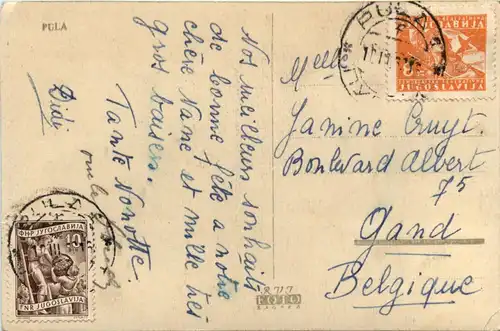 PULA
Nos meilleurs souhaits
de bonne fête a notre
chère Nane et mille très
gros baisers.
Tante Nonotte.
Didi
Melle
Janine Cruyt.
Boulevard Albert
75
Gand
Belgique
PULA
ФНР ЈУГОСЛАВИЈА
10
FNR JUGOSLAVIJA
FOTO
ZAGREB